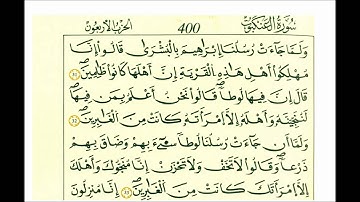 سورة العنكبوت 400 الحزب الأربعون
وَلَمَّا جَاءَتْ رُسُلُنَا إِبْرَاهِيمَ بِالْبُشْرَى قَالُوا إِنَّا
مُهْلِكُوا أَهْلِ هَذِهِ الْقَرْيَةِ إِنَّ أَهْلَهَا كَانُوا ظَالِمِينَ
قَالَ إِنَّ فِيهَا لُوطًا قَالُوا نَحْنُ أَعْلَمُ بِمَنْ فِيهَا
لَنُنَجِّيَنَّهُ وَأَهْلَهُ إِلَّا امْرَأَتَهُ كَانَتْ مِنَ الْغَابِرِينَ
وَلَمَّا أَنْ جَاءَتْ رُسُلُنَا لُوطًا سِيءَ بِهِمْ وَضَاقَ بِهِمْ
ذَرْعًا وَقَالُوا لَا تَخَفْ وَلَا تَحْزَنْ إِنَّا مُنَجُّوكَ وَأَهْلَكَ
إِلَّا امْرَأَتَكَ كَانَتْ مِنَ الْغَابِرِينَ إِنَّا مُنْزِلُونَ